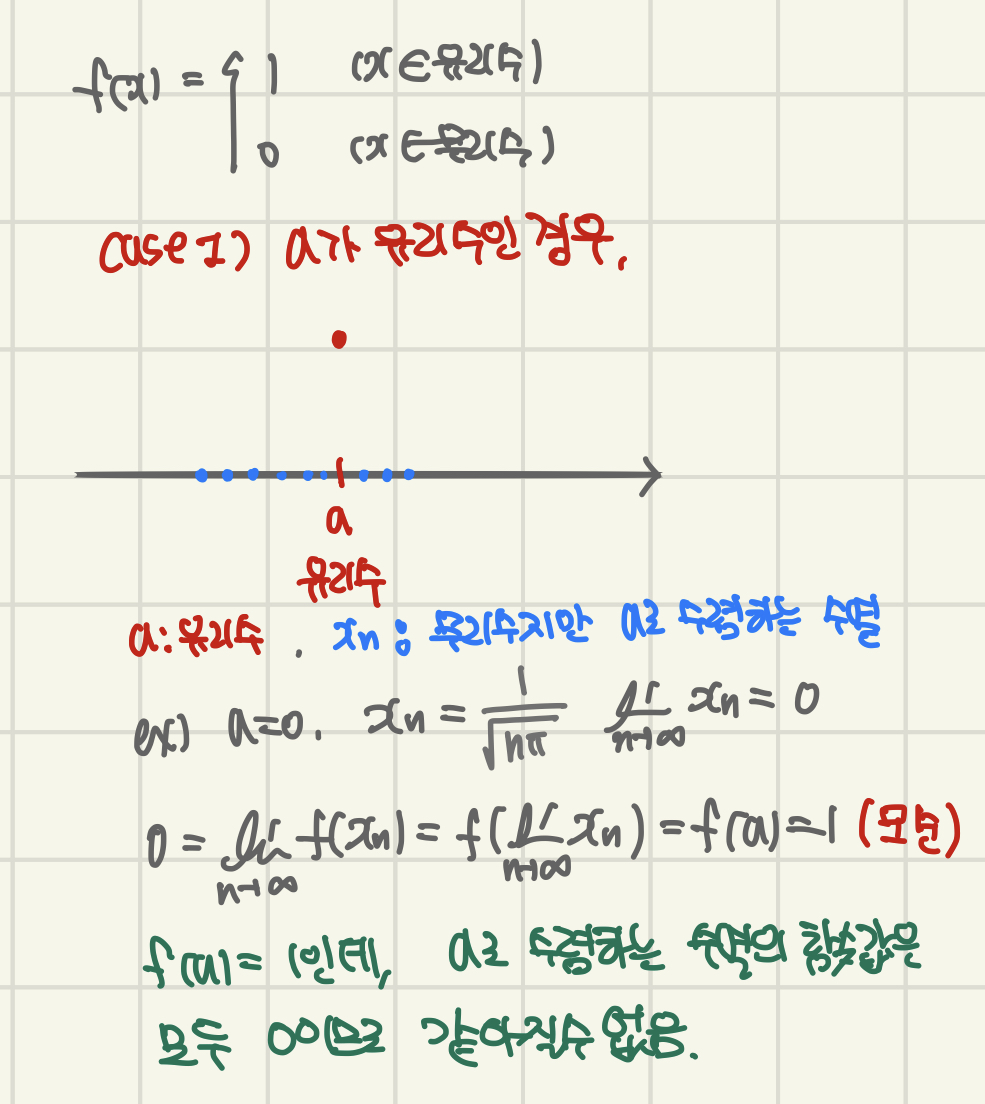 f(x) = { 1 (x ∈ 유리수)
0 (x ∈ 무리수)
case 1) a가 유리수인 경우.
a
유리수
a: 유리수. xn: 무리수지만 a로 수렴하는 수열
ex) a=0. xn = 1/√(nπ) lim n→∞ xn = 0
0 = lim n→∞ f(xn) = f(lim n→∞ xn) = f(a) = 1 (모순)
f(a) = 1인데, a로 수렴하는 수열의 함숫값은
모두 0으로 같아질 수 없음.